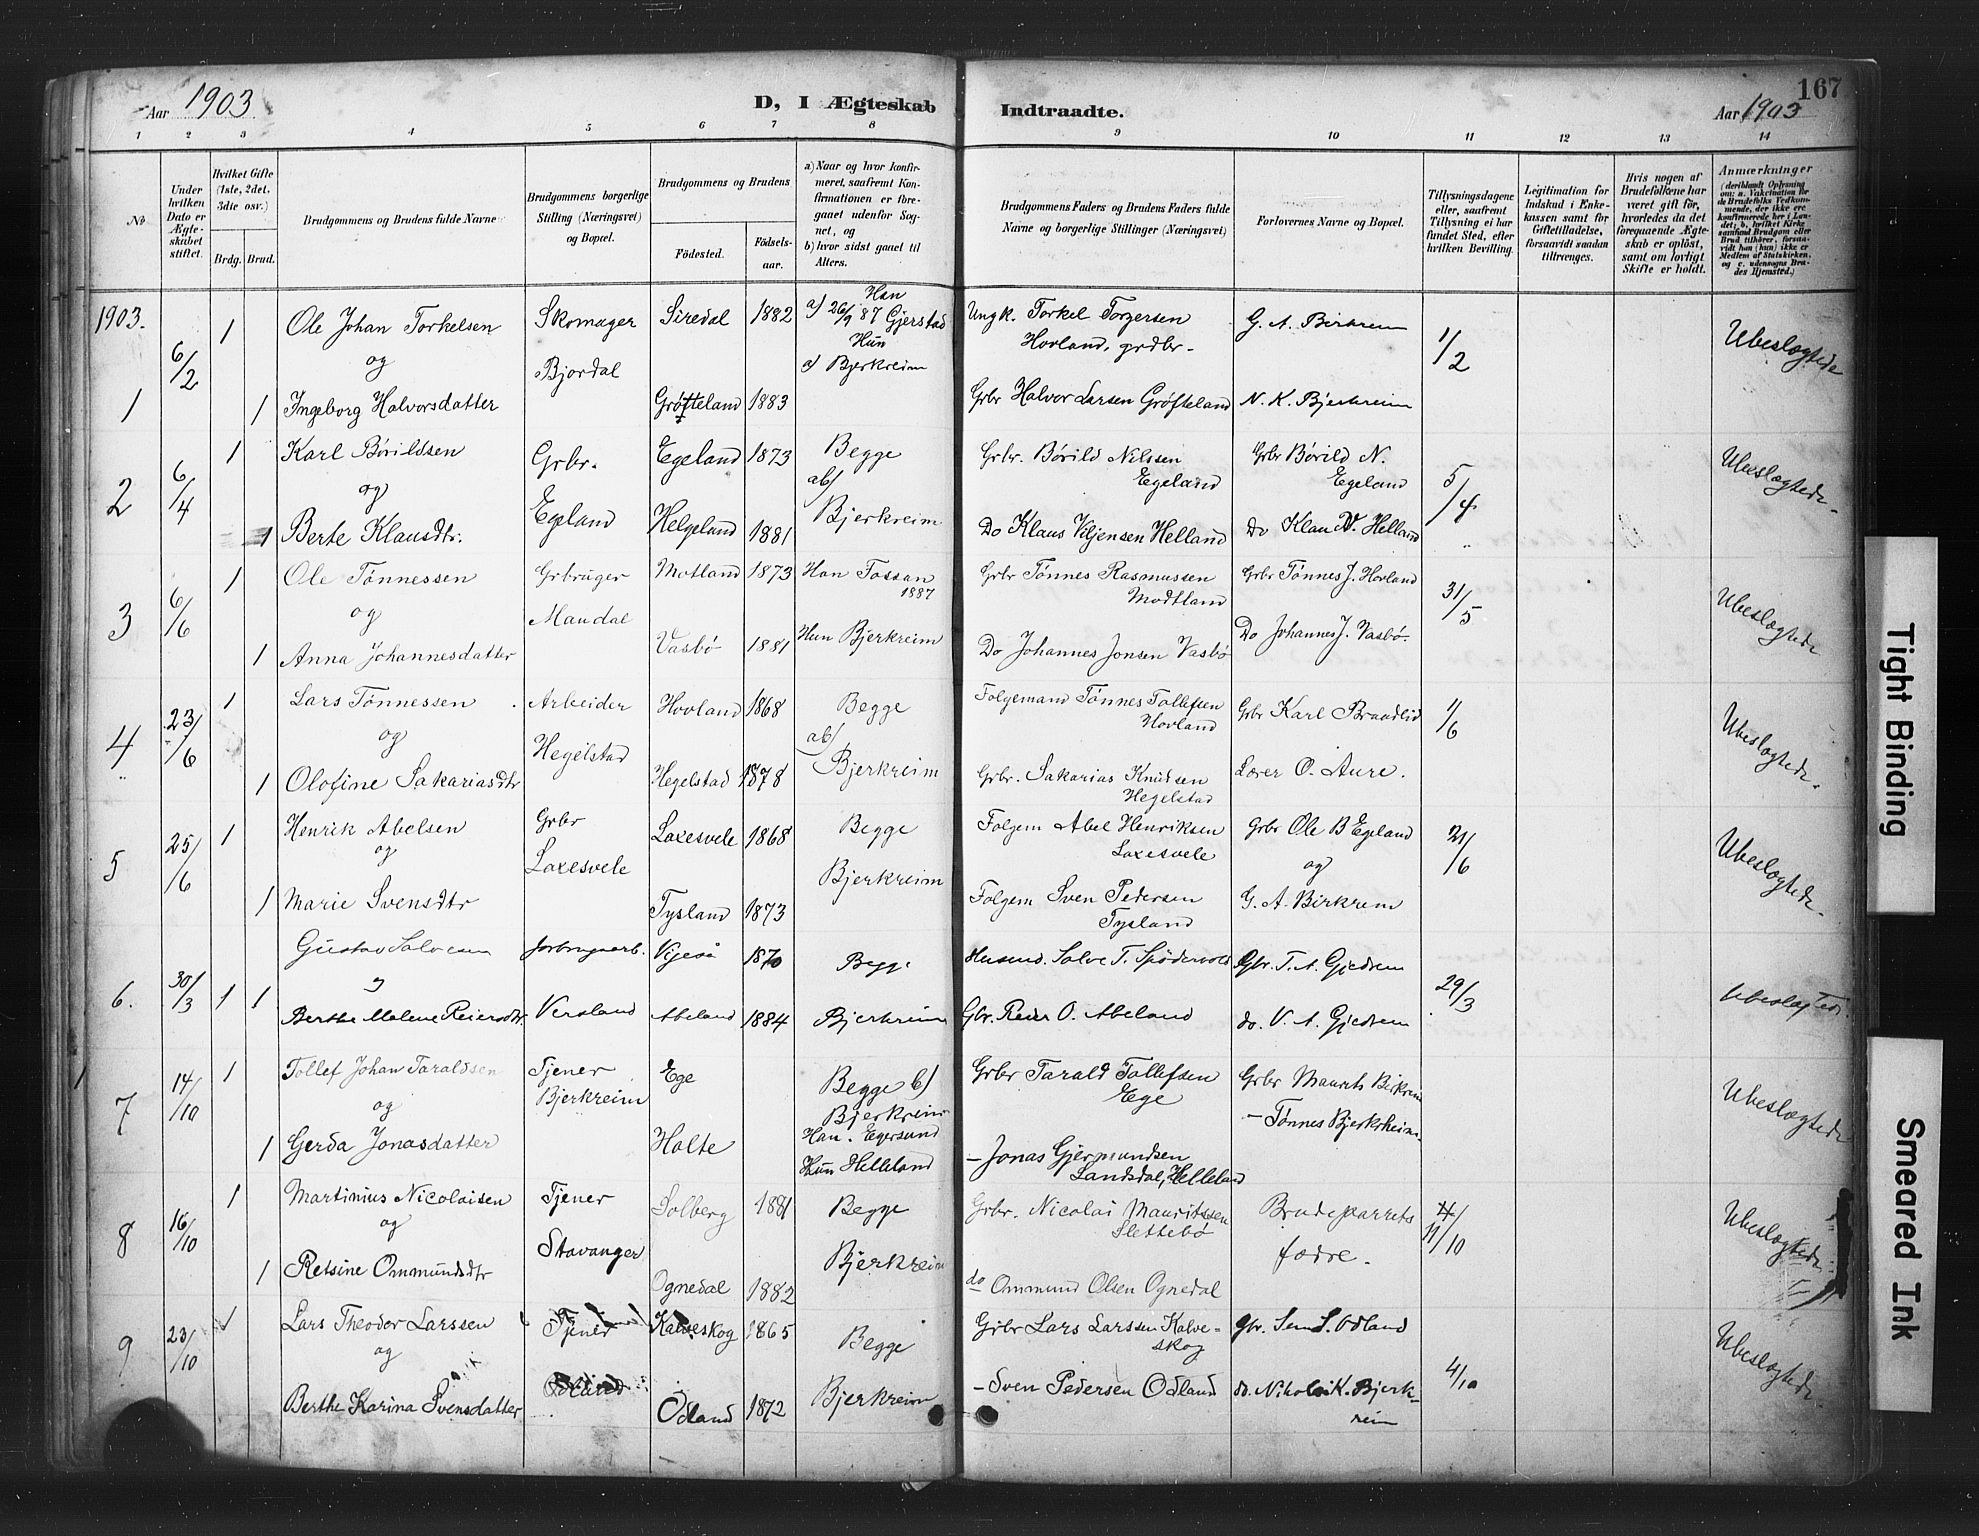 Aar 1903
D, I Ægteskab Indtraadte.
Aar 1903
167
1 2 3 4 5 6 7 8 9 10 11 12 13 14
No
Under hvilken Dato er Ægteskabet stiftet.
Hvilket Gifte (1ste, 2det, 3die osv.)
Brdg. Brud.
Brudgommens og Brudens fulde Navne
Brudgommens borgerlige Stilling (Næringsvei) og Bopæl.
Brudgommens og Brudens
Fødested.
Fødsels-aar.
a) Naar og hvor konfirmeret, saafremt Konfirmationen er foregaaet udenfor Sognet, og
b) hvor sidst gaaet til Alters.
Brudgommens Faders og Brudens Faders fulde Navne og borgerlige Stillinger (Næringsvei)
Forlovernes Navne og Bopæl.
Tillysningsdagene eller, saafremt Tillysning ei har fundet Sted, efter hvilken Bevilling.
Legitimation for Indskud i Enkekassen samt for Giftetilladelse, forsaavidt saadan tiltrænges.
Hvis nogen af Brudefolkene har været gift før, hvorledes da det foregaaende Ægteskab er opløst, samt om lovligt Skifte er holdt.
Anmærkninger
(deriblandt Oplysning om: a. Vakcination for de Brudefolks Vedkommende, der ikke ere konfirmerede her i Landet; b. hvilket Kirkesamfund Brudgom eller Brud tilhører, forsaavidt han (hun) ikke er Medlem af Statskirken, og c. udensogns Brudes Hjemsted.)
1903.
1 6/2 1 Ole Johan Torkelsen Skomager Siredal 1882 Han a) 26/9 87 Gjerstad Ungk. Torkel Torgersen Hovland, grdbr. G. A. Birkrem 1/2 Ubeslægtede
og Bjordal Hun a) Bjerkreim
1 Ingeborg Halvorsdatter Grøfteland 1883 Grbr Halvor Larsen Grøfteland N. K. Bjerkreim
2 6/4 1 Karl Børildsen Grbr. Egeland 1873 Begge ab) Grbr. Børild Nilssen Egeland Grbr Børild N. Egeland 5/4 Ubeslægtede
og Egeland
1 Berte Klausdtr. Helgeland 1881 Bjerkreim Do Klaus Viljensen Helland Do Klau V. Helland
3 6/6 1 Ole Tønnessen Grbruger Motland 1873 Han Fossan 1887 Grbr Tønnes Rasmussen Modtland Grbr Tønnes J. Hovland 31/5 Ubeslægtede
og Maudal
1 Anna Johannesdatter Vasbø 1881 Hun Bjerkreim Do Johannes Jonsen Vasbø Do Johannes J. Vasbø.
4 23/6 1 Lars Tønnessen Arbeider Hovland 1868 Begge ab) Folgemand Tønnes Tollefsen Hovland Grbr Karl Braadlid 1/6 Ubeslægtede
og Hegelstad
1 Olofine Sakariasdtr Hegelstad 1878 Bjerkreim Grbr. Sakarias Knudsen Hegelstad Lærer O. Aure.
5 25/6 1 Henrik Abelsen Grbr Laxesvele 1868 Begge Folgem Abel Henriksen Laxesvele Grbr Ole B Egeland 21/6 Ubeslægtede
og Laxesvele Bjerkreim og
1 Marie Svensdtr Tysland 1873 Folgem Sven Pedersen Tysland G. A. Birkrem
6. 30/3 1 1 Gustav Salvesen Vigeså 1870 Begge Husmd. Salve T. Spødervold Gbr. T. A. Gjedrem 29/3 Ubeslægtede
Berthe Malene Reiersdtr. Versland Abeland 1884 Bjerkreim Gbr. Reier O. Abeland do. V. A. Gjedrem
7 14/10 1 Tollef Johan Taraldsen Tjener Ege Begge b) Bjerkreim Grbr Tarald Tollefsen Ege Grbr Maurits Birkreim Ubeslægtede
og Bjerkreim – Tønnes Bjerkrheim.
1 Gerda Jonasdatter Holte Han. Egersund Hun Helleland – Jonas Gjermundsen Landsdal, Helleland
8 16/10 1 Martinius Nicolaisen Tjener Solberg 1881 Begge Grbr. Nicolai Mauritssen Slettebø Brudeparrets 4/11/10 Ubeslægtede
og Stavanger fædre.
1 Retsine Ommundsdtr Ognedal 1882 Bjerkreim do Ommund Olsen Ognedal
9 23/10 1 Lars Theodor Larssen Tjener Kalveskog 1865 Begge Grbr Lars Larssen Kalveskog Gbr. Sem S. Odland 4/10 Ubeslægtede
og Odland
Berthe Karina Svensdatter Odland 1872 Bjerkreim – Sven Pedersen Odland do. Nikolai K. Bjerkreim
Tight Binding
Smeared Ink